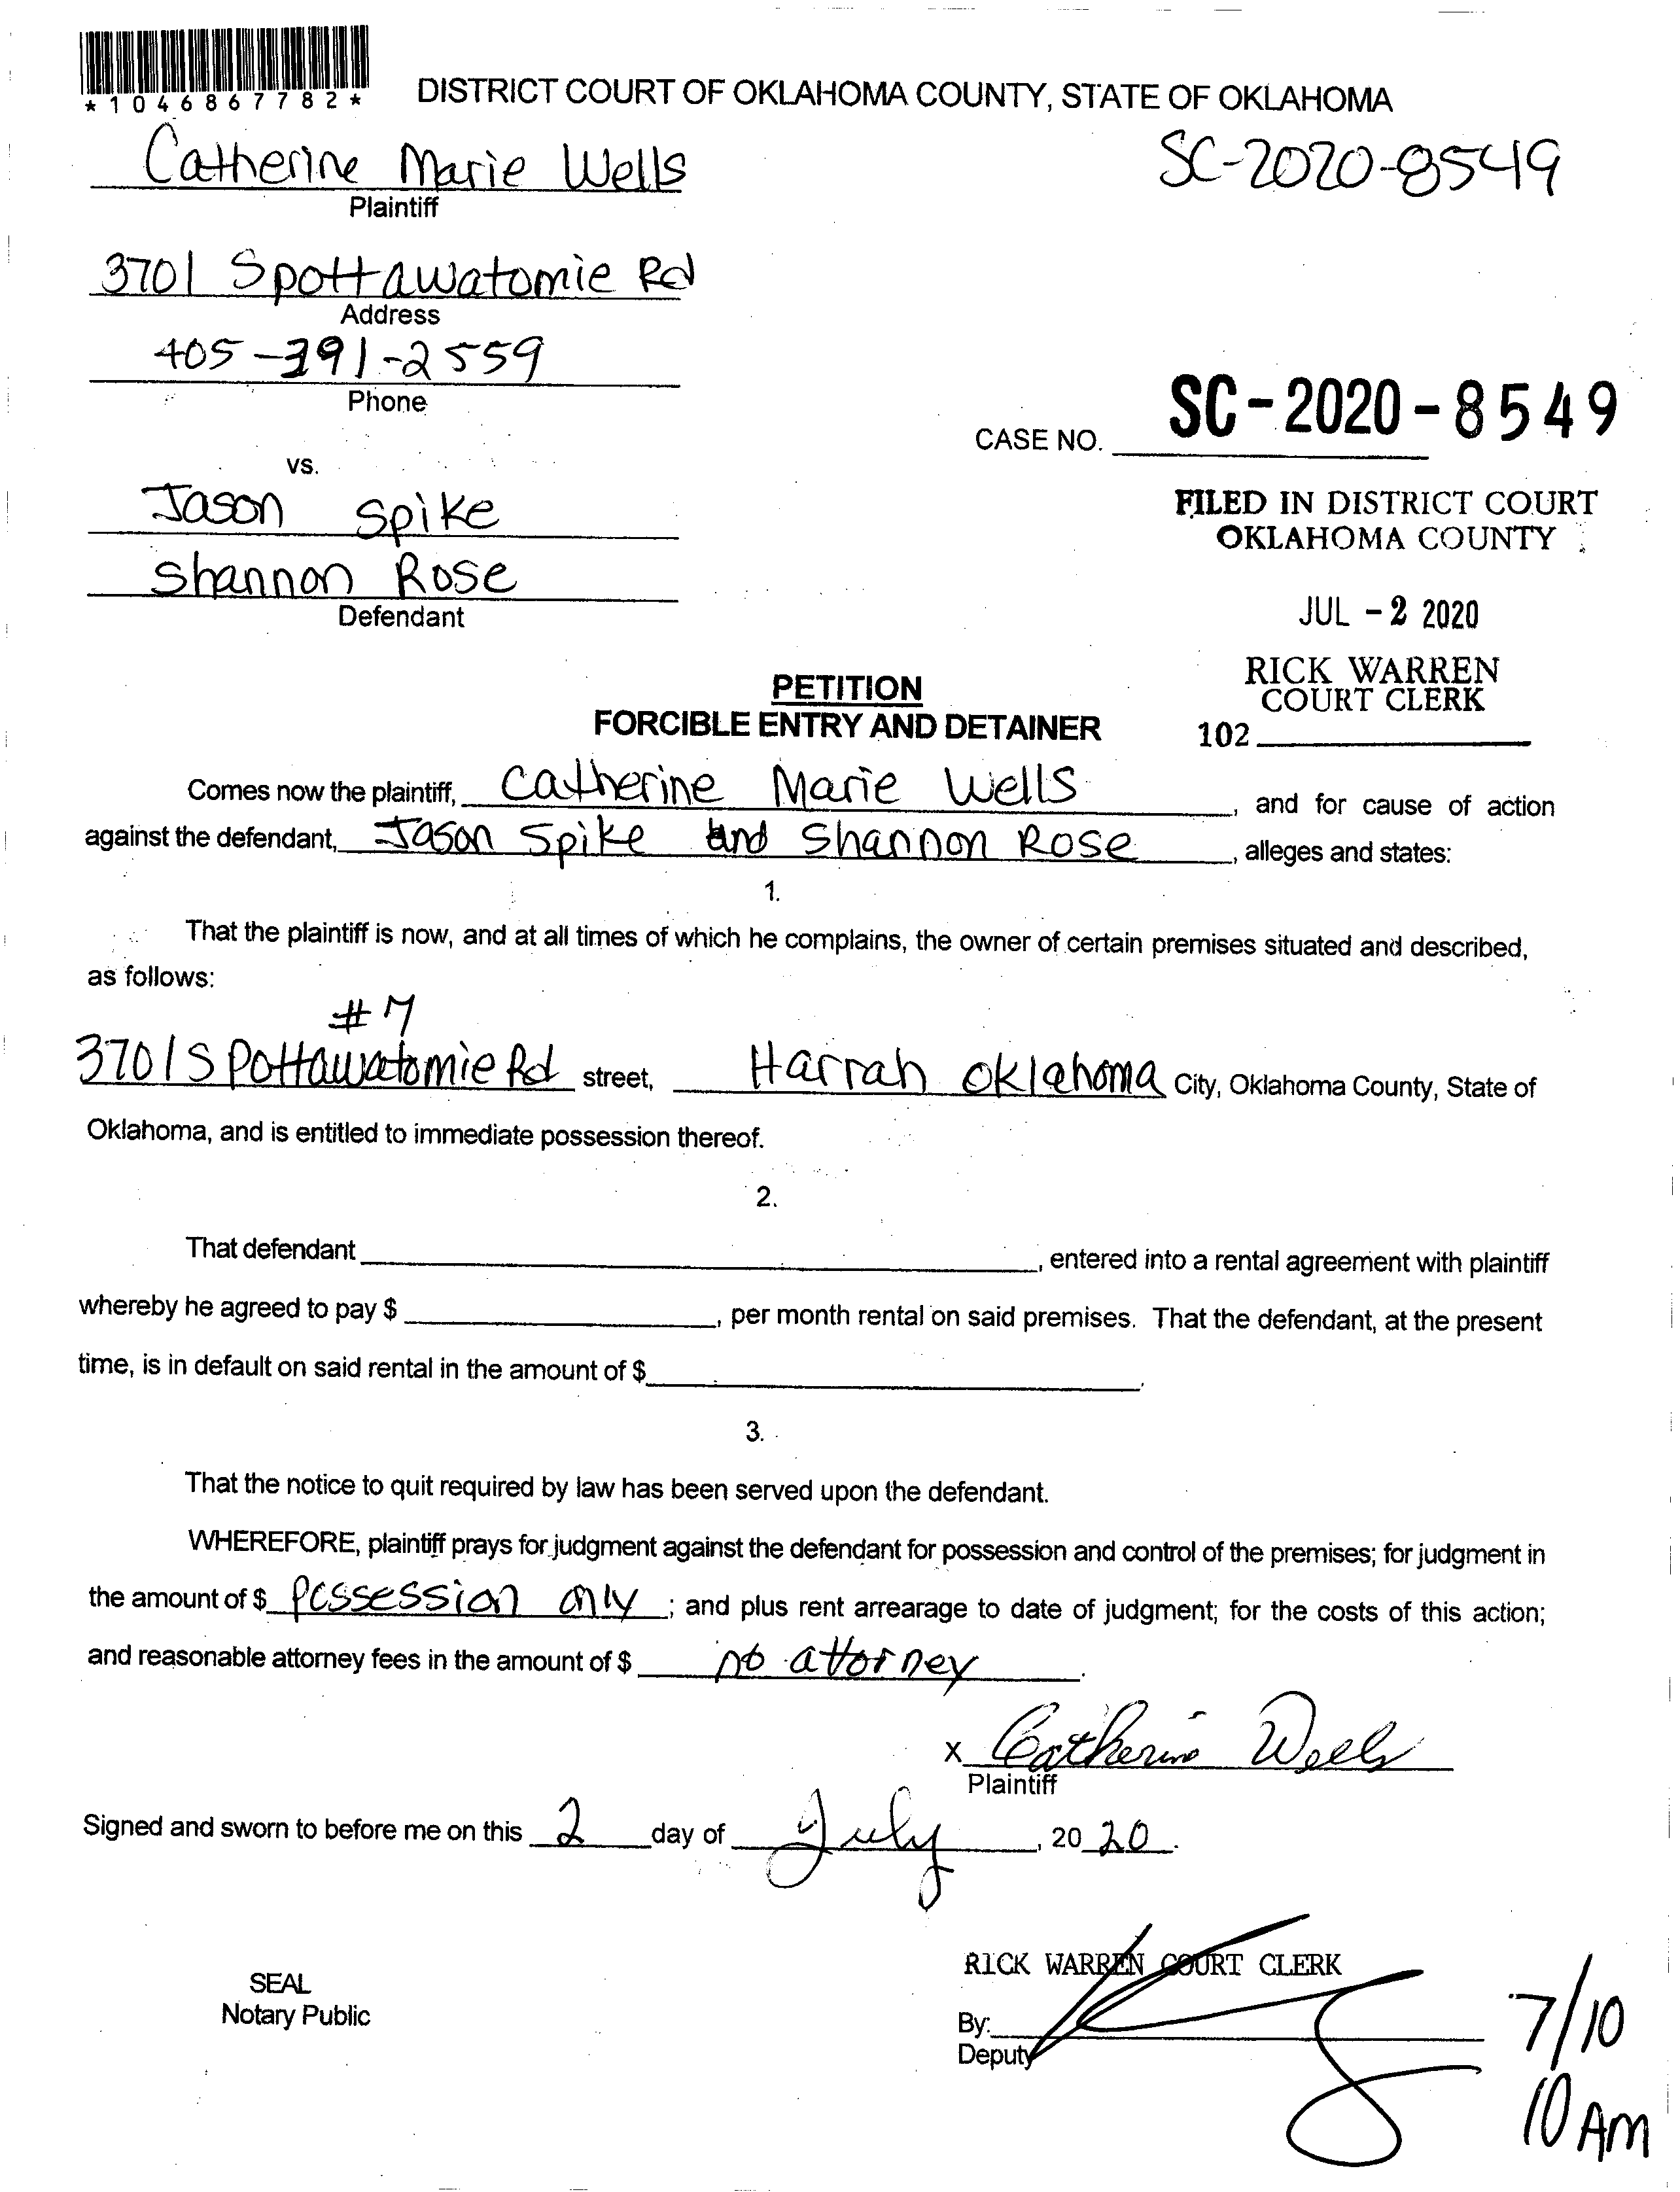 *1046867782*
DISTRICT COURT OF OKLAHOMA COUNTY, STATE OF OKLAHOMA
Catherine Marie Wells
SC-2020-8549
Plaintiff
3701 Spottawatomie Rd
Address
405-391-2559
Phone
CASE NO. SC-2020-8549
vs.
Jason Spike
FILED IN DISTRICT COURT
OKLAHOMA COUNTY
Shannon Rose
Defendant
JUL -2 2020
RICK WARREN
COURT CLERK
102
PETITION
FORCIBLE ENTRY AND DETAINER
Comes now the plaintiff, Catherine Marie Wells, and for cause of action
against the defendant, Jason Spike and Shannon Rose, alleges and states:
1.
That the plaintiff is now, and at all times of which he complains, the owner of certain premises situated and described,
as follows:
#7
3701 S Pottawatomie Rd street, Harrah Oklahoma City, Oklahoma County, State of
Oklahoma, and is entitled to immediate possession thereof.
2.
That defendant , entered into a rental agreement with plaintiff
whereby he agreed to pay $ , per month rental on said premises. That the defendant, at the present
time, is in default on said rental in the amount of $ .
3.
That the notice to quit required by law has been served upon the defendant.
WHEREFORE, plaintiff prays for judgment against the defendant for possession and control of the premises; for judgment in
the amount of $ possession only; and plus rent arrearage to date of judgment; for the costs of this action;
and reasonable attorney fees in the amount of $ no attorney.
x Catherine Wells
Plaintiff
Signed and sworn to before me on this 2 day of July, 2020.
RICK WARREN COURT CLERK
SEAL
Notary Public
By:
Deputy
7/10
10 AM